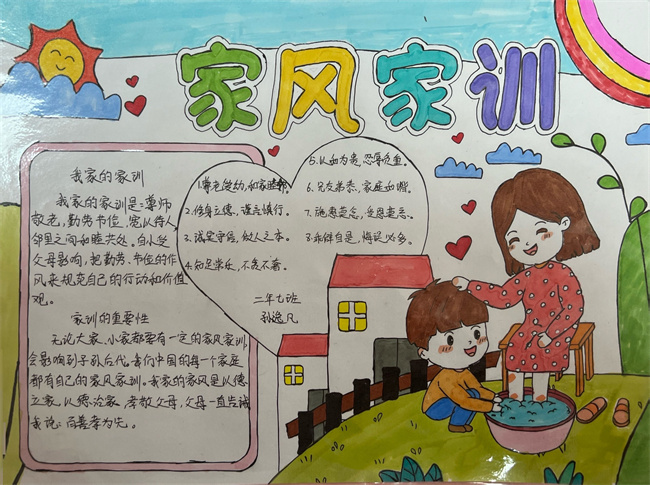 家风家训
我家的家训
我家的家训是：尊师
敬老，勤劳节俭，宽以待人，
邻里之间和睦共处。自小受
父母影响，把勤劳、节俭的作
风来规范自己的行动和价值
观。
家训的重要性
无论大家、小家都要有一定的家风家训，
会影响到子孙后代。我们中国的每一个家庭
都有自己的家风家训。我家的家风是以德
立家，以德治家，孝敬父母，父母一直告诫
我说：百善孝为先。
1.尊老爱幼，和家睦邻。
2.修身立德，谨言慎行。
3.诚实守信，做人之本。
4.知足常乐，不贪不奢。
5.以和为贵，忍辱负重。
6.兄友弟恭，家庭和谐。
7.施惠莫念，受恩莫忘。
8.乖僻自是，悔误必多。
二年七班
孙逸凡